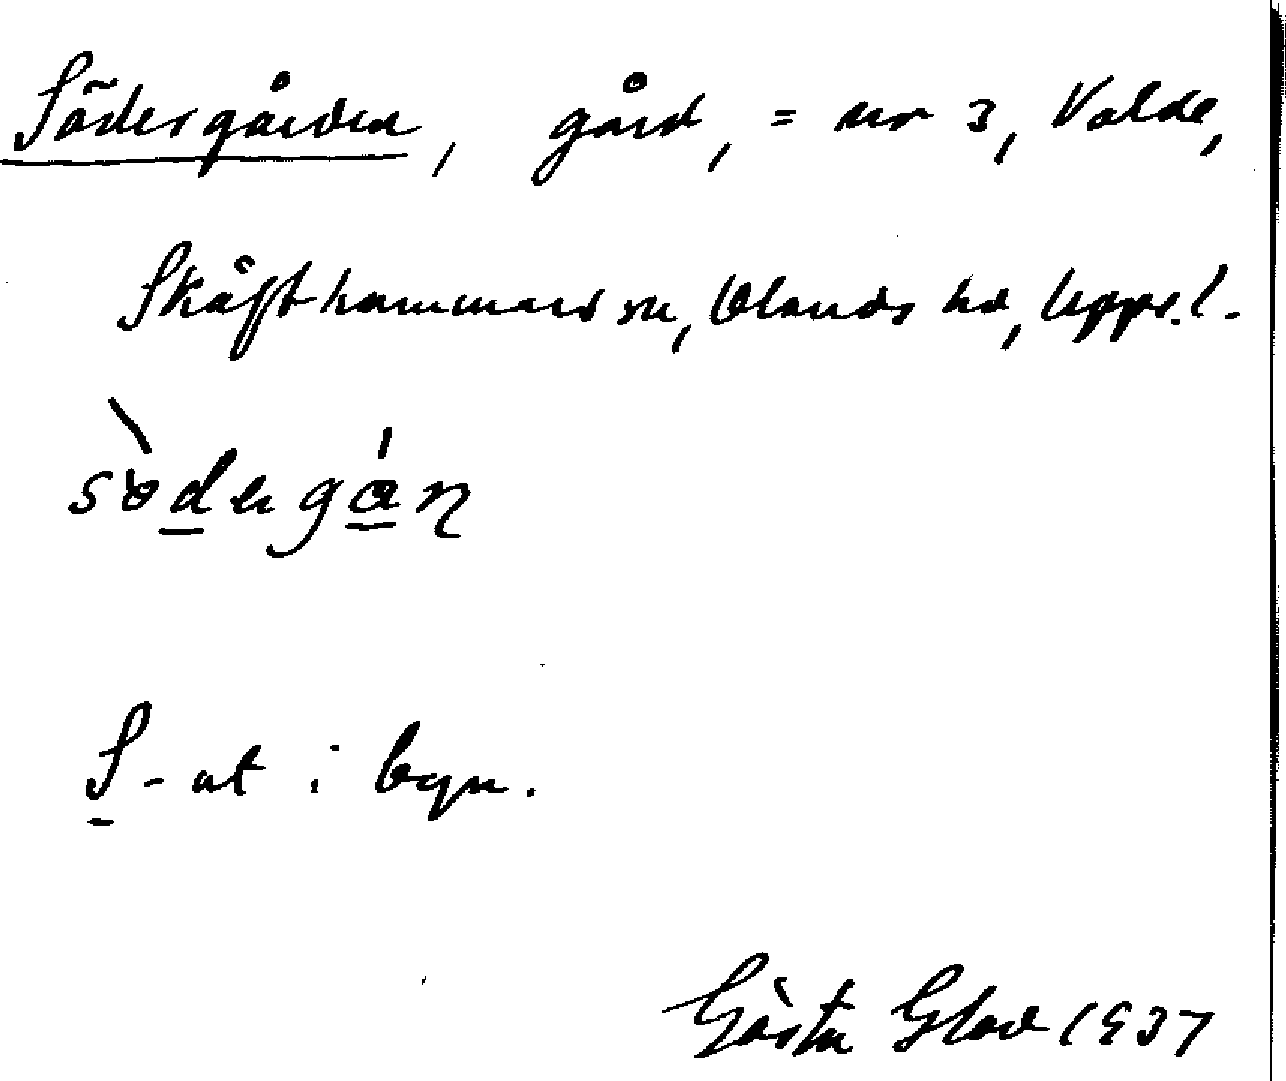 Södergården, gård, = nr 3, Valde,
Skäfthammars sn, Olands hd, Upps. l.
S-ut i byn.
Gösta Glad 1937